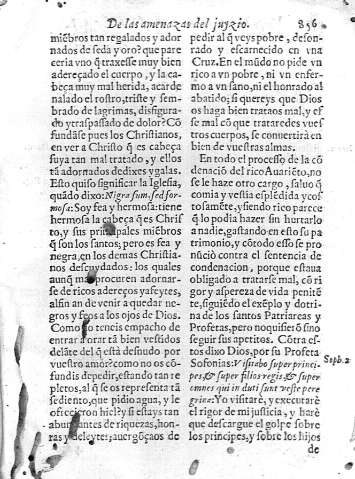 De las amenazas del juyzio. 856
miẽbros tan regalados y ador
nados de seda y oro? que pare
ceria vno q̃ traxesse muy bien
adereçado el cuerpo, y la ca
beça muy mal herida, acarde
nalado el rostro, triste y sem-
brado de lagrimas, disfigura-
do y traspassado de dolor? Cõ
fundãse pues los Christianos,
en ver a Christo q̃ es cabeça
suya tan mal tratado, y ellos
tã adornados de dixes y galas.
Esto quiso significar la Iglesia,
quãdo dixo: Nigra sum, sed for-
mosa: Soy fea y hermosa: tiene
hermosa la cabeça q̃ es Chris
to, y sus principales miẽbros
q̃ son los santos; pero es fea y
negra, en los demas Christia-
nos descuydados: los quales
aunq̃ mas procuren adornar-
se de ricos adereços y afeytes,
al fin an de venir a quedar ne-
gros y feos a los ojos de Dios.
Como no teneis empacho de
entrar a orar tã bien vestidos
delãte del q̃ està desnudo por
vuestro amor? como no os cõ-
fundis de pedir, estando tan re
pletos, al q̃ se os representa tã
sediento, que pidio agua, y le
ofrecieron hiel? si estays tan
abundantes de riquezas, hon-
ras y deleytes; auergõçaos de
pedir al q̃ veys pobre, deshon-
rado y escarnecido en vna
Cruz. En el mũdo no pide vn
rico a vn pobre, ni vn enfer-
mo a vn sano, ni el honrado al
abatido; si quereys que Dios
os haga bien trataos mal, y es-
se mal cõ que trataredes vues
tros cuerpos, se conuertirà en
bien de vuestras almas.
En todo el processo de la cõ
denaciõ del rico Auariẽto, no
se le haze otro cargo, saluo q̃
comia y vestia esplẽdida y cos
tosamẽte, y siendo rico parece
q̃ lo podia hazer sin hurtarlo
a nadie, gastando en esto su pa
trimonio, y cõ todo esso se pro
nũciò contra el sentencia de
condenacion, porque estaua
obligado a tratarse mal, cõ ri
gor y aspereza de vida penitẽ
te, siguiẽdo el exẽplo y dotri-
na de los santos Patriarcas y
Profetas, pero no quiso sino
seguir sus apetitos. Cõtra es-
tos dixo Dios, por su Profeta
Sofonias: Visitabo super princi- Soph. 2
pes, & super filios regis & super
omnes qui induti sunt veste pere
grina: Yo visitarè, y executarè
el rigor de mi justicia, y harè
que descargue el golpe sobre
los principes, y sobre los hijos
de